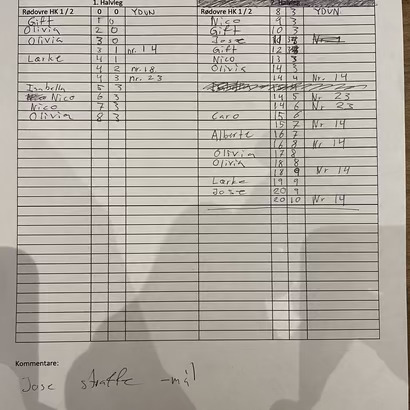 1. Halvleg
Rødovre HK 1/2 0 0 YDUN Rødovre HK 1/2 8 3 YDUN
Gift 1 0 Nico 9 3
Olivia 2 0 Gift 10 3
Olivia 3 0 Jose
3 1 nr. 14 Gift 12
Lærke 4 1 Nico 13 3
4 2 nr. 18 Olivia 14 3
4 3 nr. 23 14 4 Nr. 14
Isabella 5 3
Nico 6 3 14 5 Nr 23
Nico 7 3 14 6 Nr 23
Olivia 8 3 Caro 15 6
15 7 Nr 14
Alberte 16 7
16 8 Nr 14
Olivia 17 8
Olivia 18 8
18 9 Nr 14
Lærke 19 9
Jose 20 9
20 10 Nr 14
Kommentare:
Jose straffe -mål